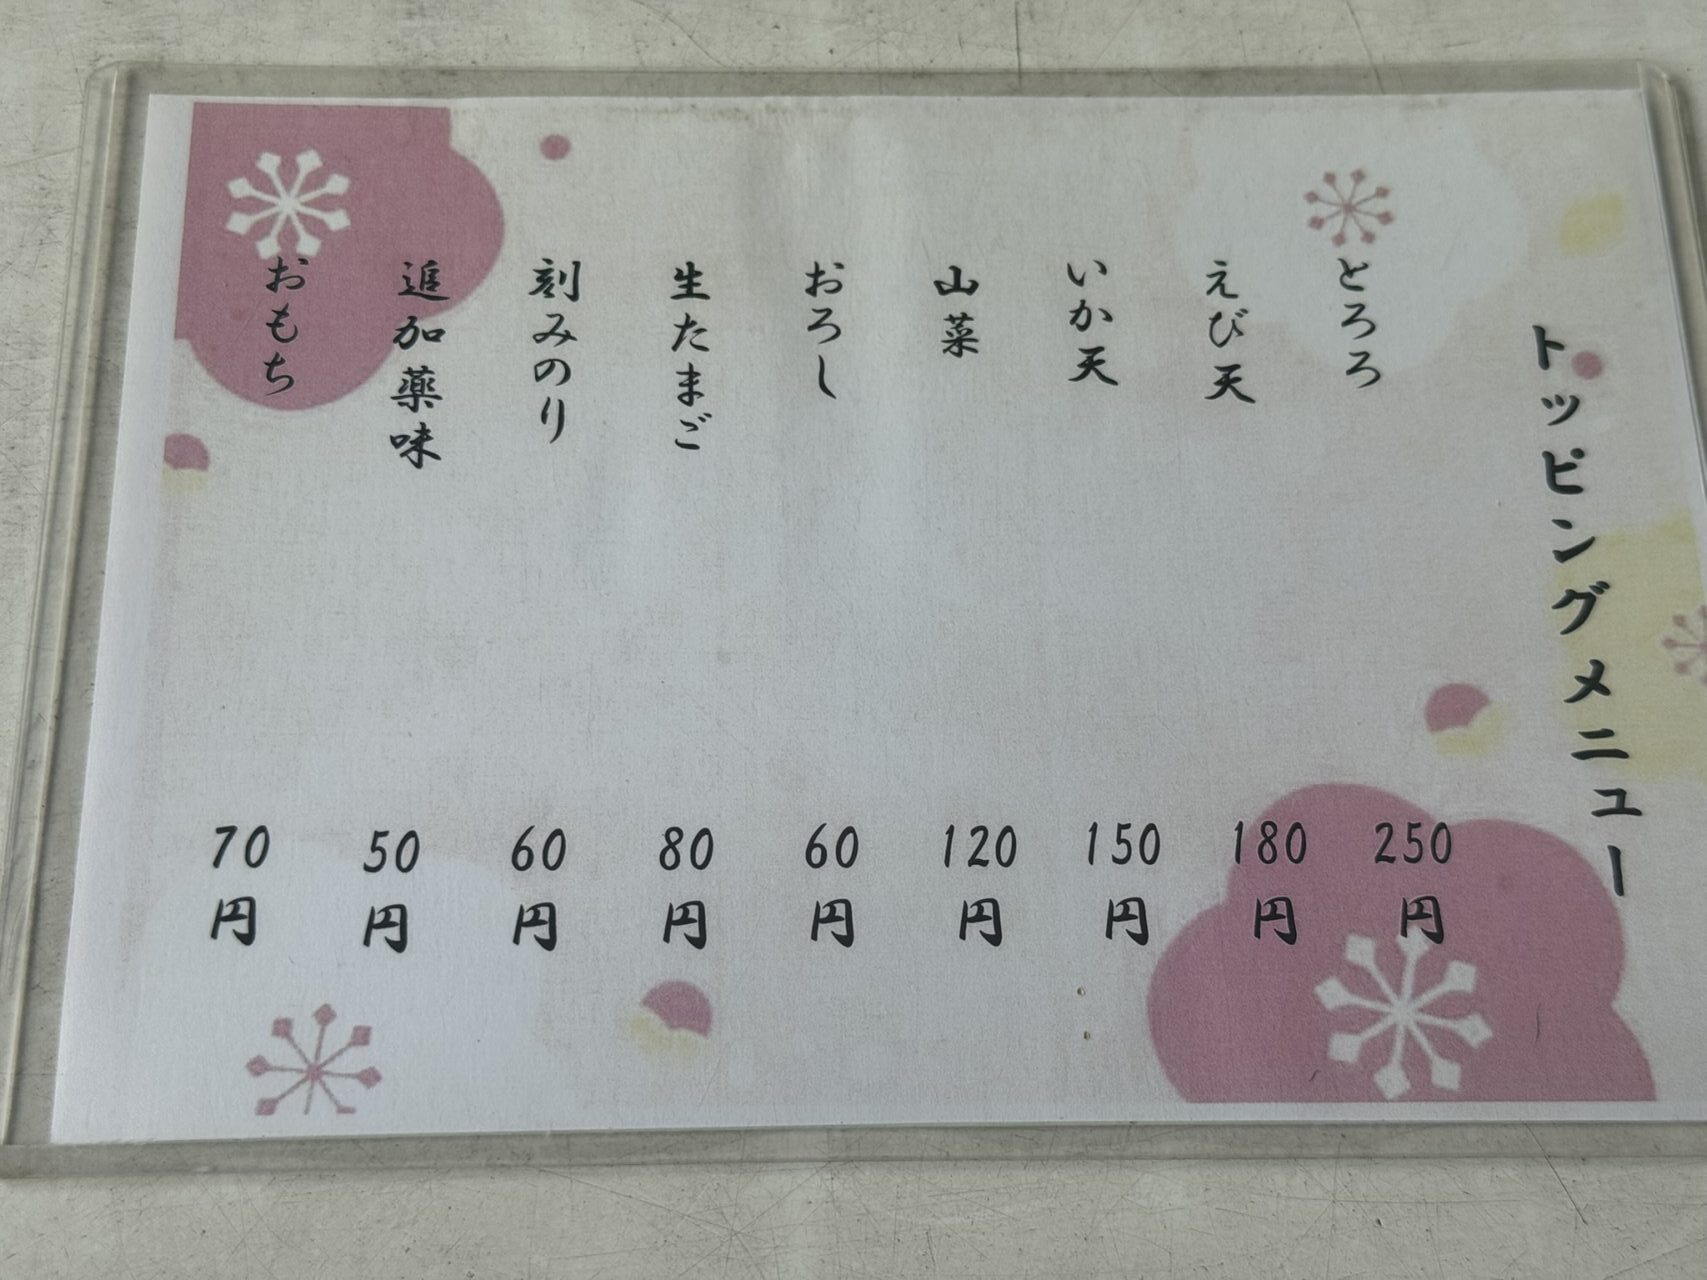 トッピングメニュー
とろろ 250円
えび天 180円
いか天 150円
山菜 120円
おろし 60円
生たまご 80円
刻みのり 60円
追加薬味 50円
おもち 70円